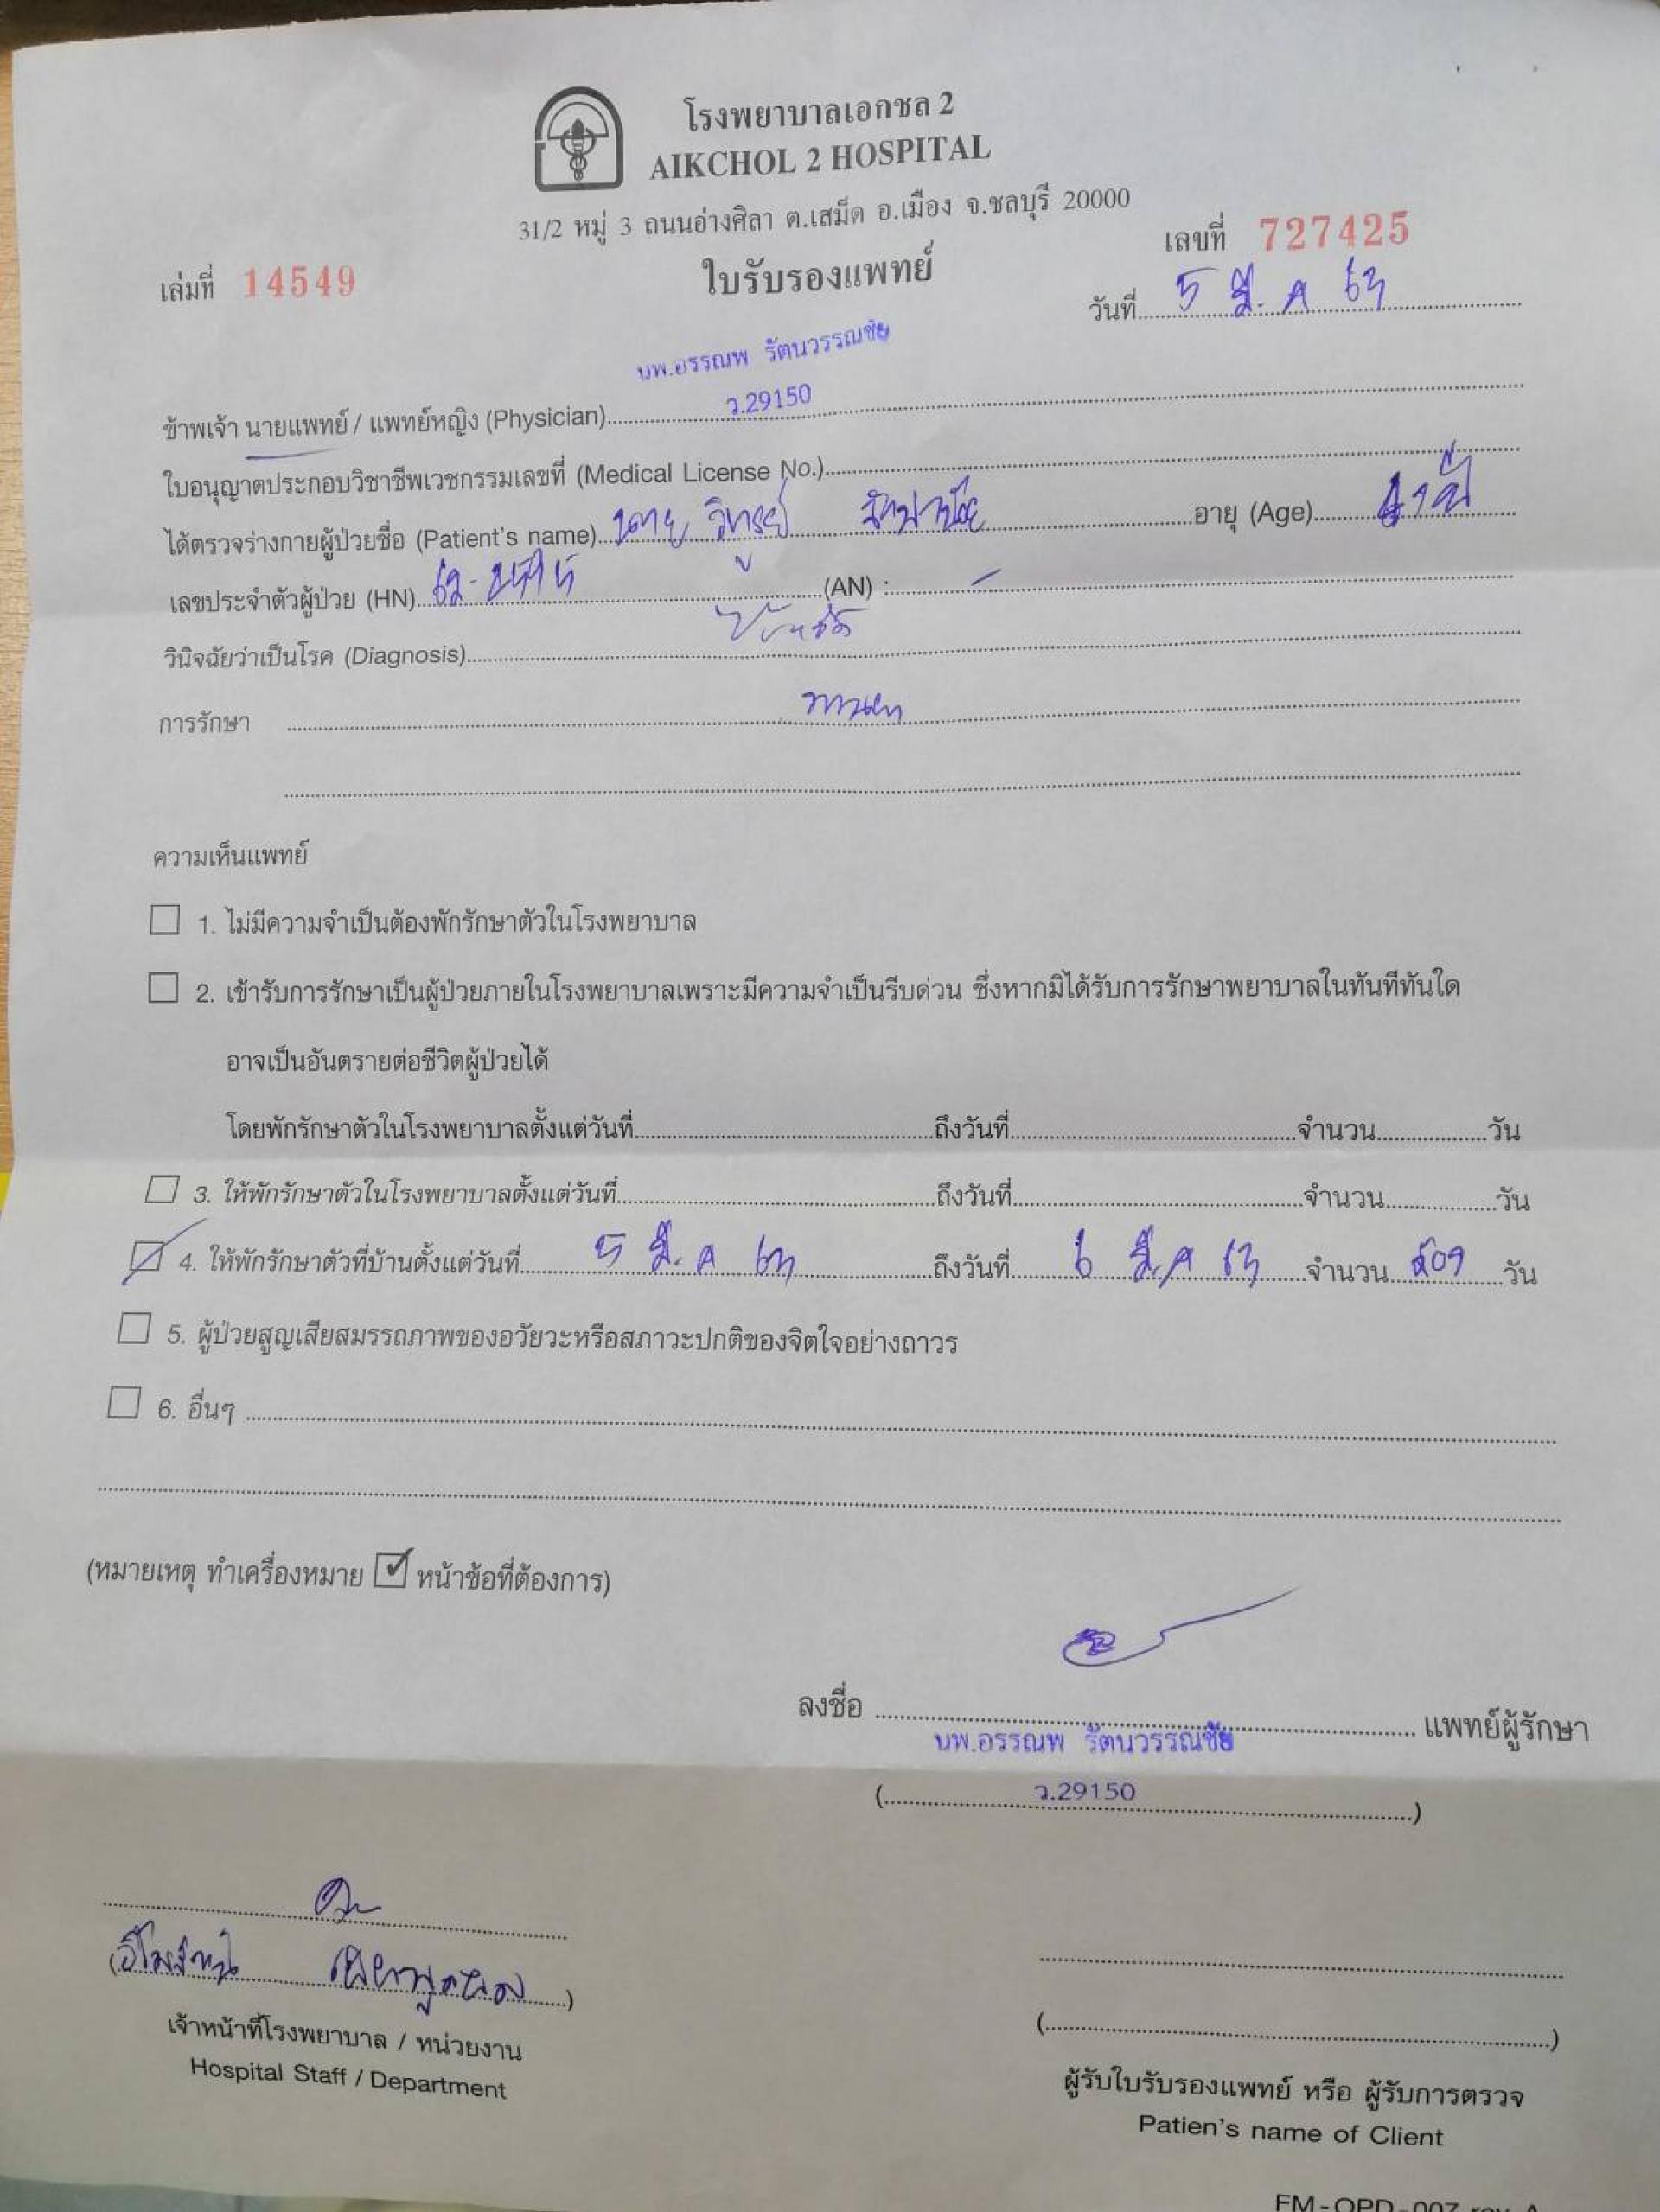 โรงพยาบาลเอกชล 2
AIKCHOL 2 HOSPITAL
31/2 หมู่ 3 ถนนอ่างศิลา ต.เสม็ด อ.เมือง จ.ชลบุรี 20000
เล่มที่ 14549
ใบรับรองแพทย์
เลขที่ 727425
วันที่ 5 มี.ค 63
นพ.อรรณพ รัตนวรรณชัย
ว.29150
ข้าพเจ้า นายแพทย์ / แพทย์หญิง (Physician)
ใบอนุญาตประกอบวิชาชีพเวชกรรมเลขที่ (Medical License No.)
ได้ตรวจร่างกายผู้ป่วยชื่อ (Patient's name) นาย อายุ (Age) ปี
เลขประจำตัวผู้ป่วย (HN) (AN) : -
วินิจฉัยว่าเป็นโรค (Diagnosis) ไข้หวัด
การรักษา ทานยา
ความเห็นแพทย์
1. ไม่มีความจำเป็นต้องพักรักษาตัวในโรงพยาบาล
2. เข้ารับการรักษาเป็นผู้ป่วยภายในโรงพยาบาลเพราะมีความจำเป็นรีบด่วน ซึ่งหากมิได้รับการรักษาพยาบาลในทันทีทันใด
อาจเป็นอันตรายต่อชีวิตผู้ป่วยได้
โดยพักรักษาตัวในโรงพยาบาลตั้งแต่วันที่ ถึงวันที่ จำนวน วัน
3. ให้พักรักษาตัวในโรงพยาบาลตั้งแต่วันที่ ถึงวันที่ จำนวน วัน
4. ให้พักรักษาตัวที่บ้านตั้งแต่วันที่ 5 มี.ค 63 ถึงวันที่ 6 มี.ค 63 จำนวน สอง วัน
5. ผู้ป่วยสูญเสียสมรรถภาพของอวัยวะหรือสภาวะปกติของจิตใจอย่างถาวร
6. อื่นๆ
(หมายเหตุ ทำเครื่องหมาย ☑ หน้าข้อที่ต้องการ)
ลงชื่อ แพทย์ผู้รักษา
นพ.อรรณพ รัตนวรรณชัย
( ว.29150 )
เจ้าหน้าที่โรงพยาบาล / หน่วยงาน
Hospital Staff / Department
ผู้รับใบรับรองแพทย์ หรือ ผู้รับการตรวจ
Patien's name of Client
FM-OPD-007 rev A